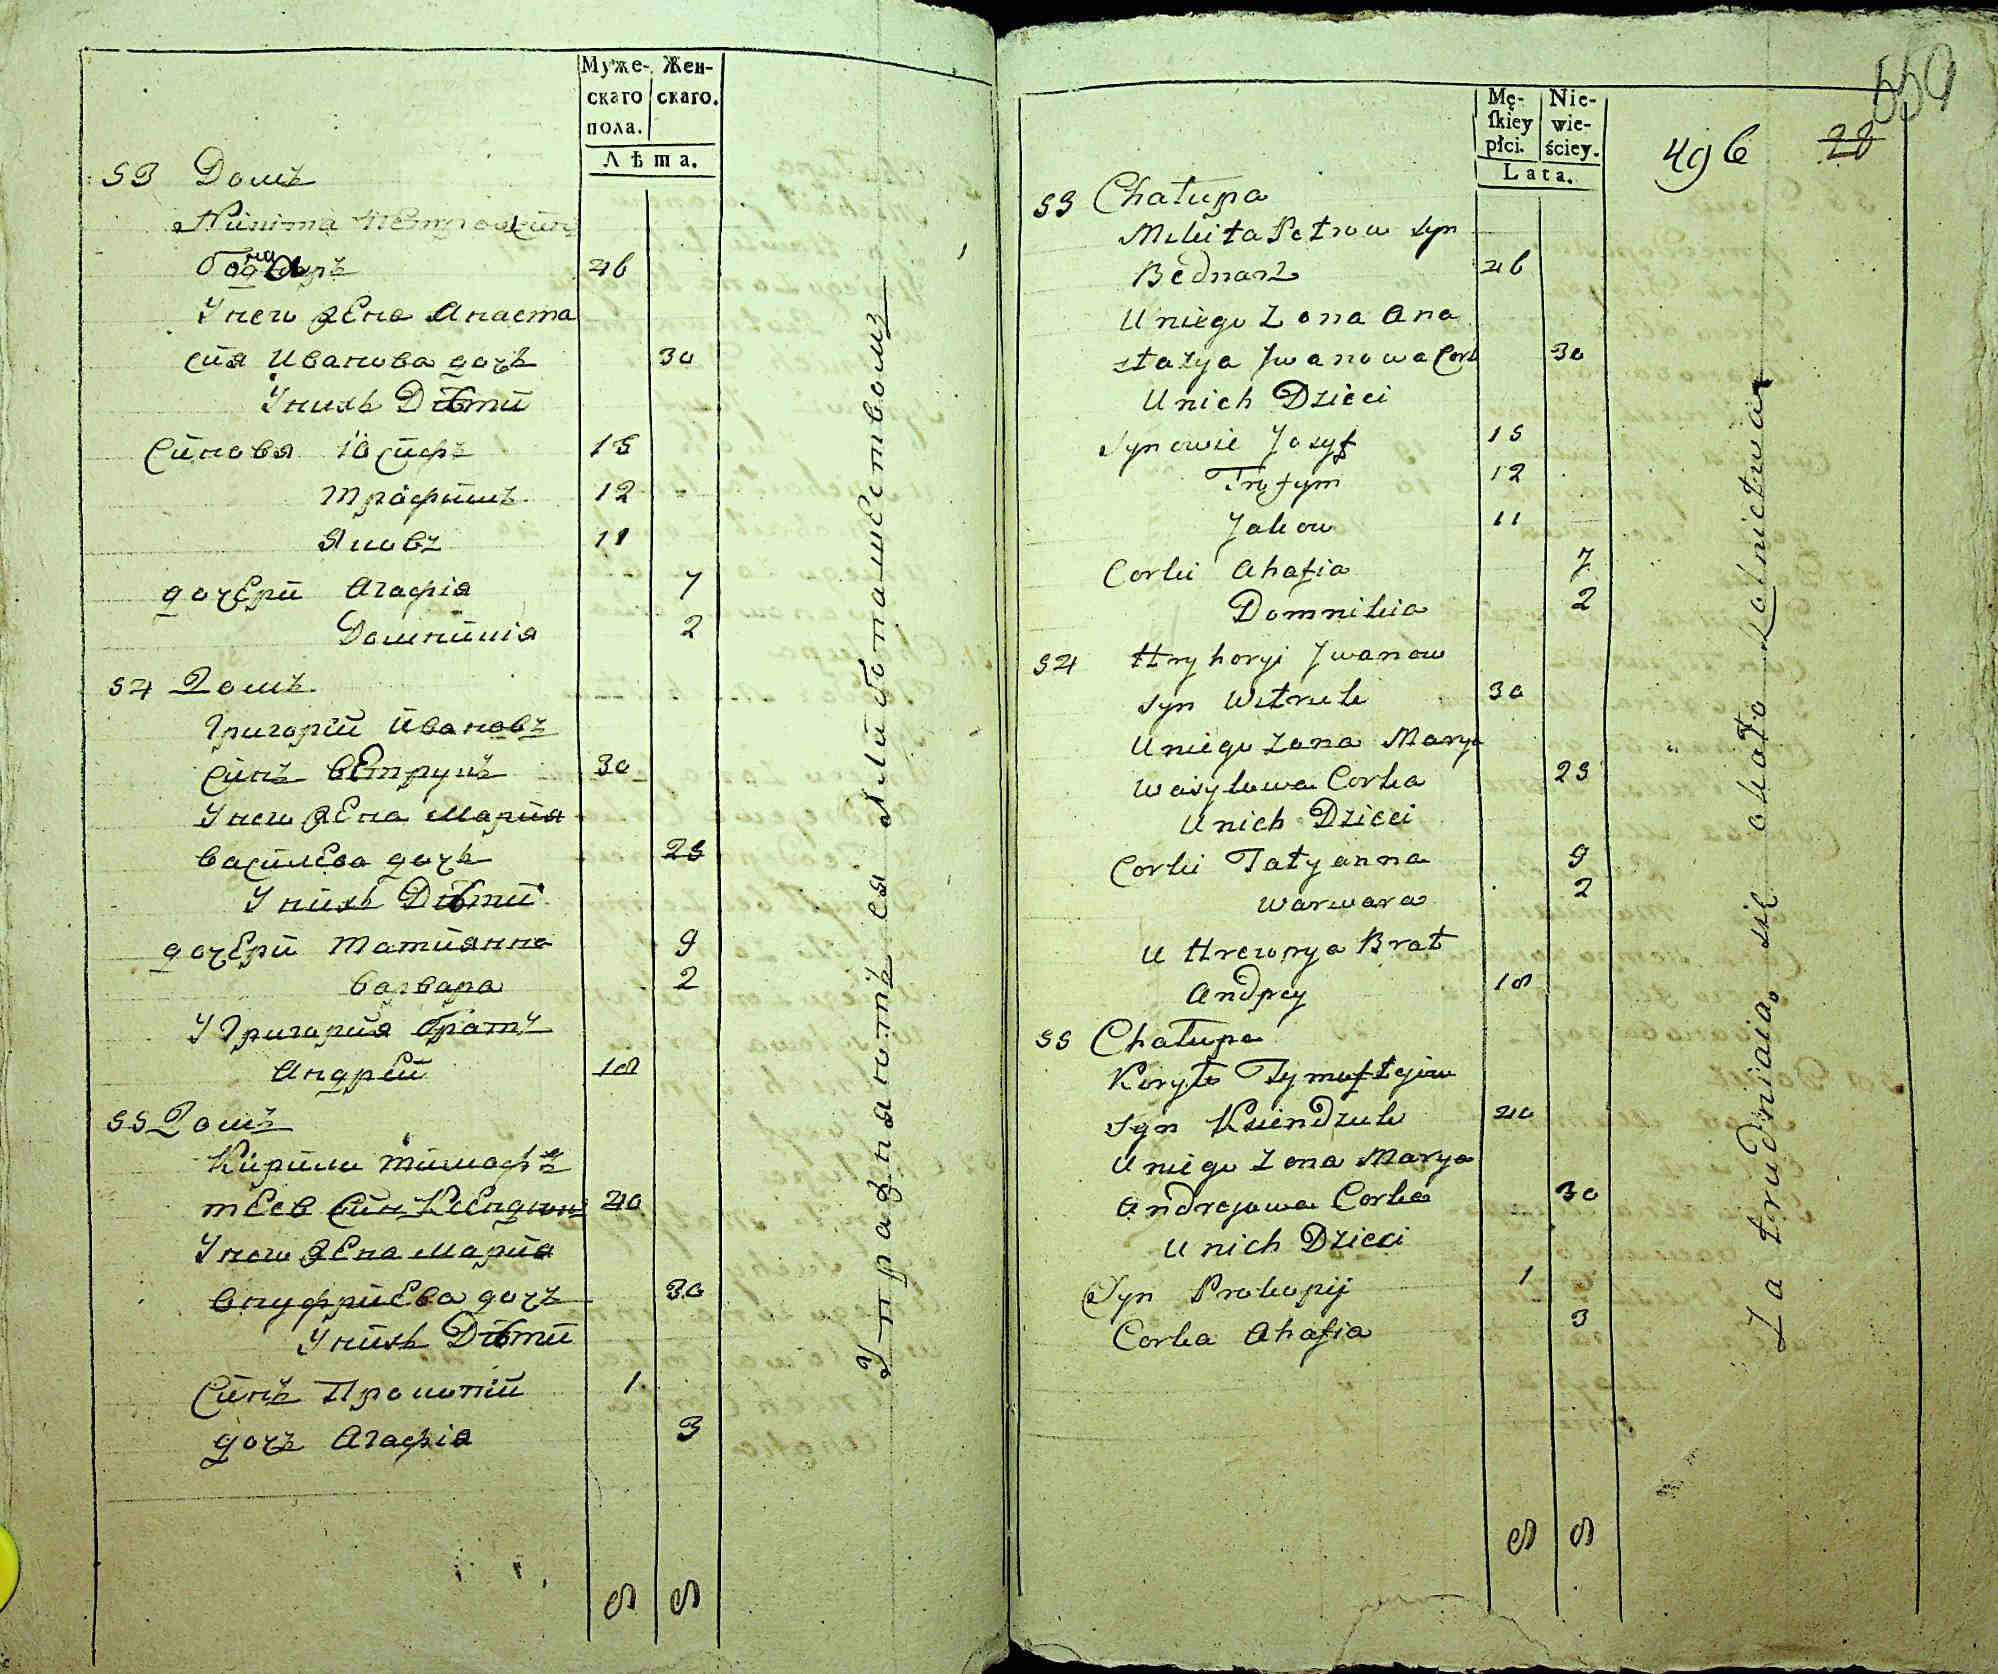 Муже- Жен-
скаго скаго.
пола.
Лѣта.
53 Домъ
Никита Петровъ синъ
боднаръ 46
У него жена Анаста
сия Иванова дочь 30
У нихъ Дѣти
Синовя Іосифъ 15
Трафимъ 12
Яковъ 11
дочери Агафія 7
Домникія 2
54 Домъ
Григорій Ивановъ
синъ Ветрукъ 30
У него жена Мария
Василева дочь 25
У нихъ Дѣти
дочери Татиянна 9
Варвара 2
У Григория братъ
Андрей 18
55 Домъ
Кирили Тимофѣ
теев синъ Ксендзюкъ 40
У него жена Мария
Внуфриева дочь 30
У нихъ Дѣти
Синъ Прокопій 1
дочь Агафія 3
8 8
Упражняютъ ся хлѣбопашествомъ
559
49 б 28
Mę- Nie-
ſkiey wie-
płci. ściey.
Lata.
53 Chałupa
Mikita Petrow Syn
Bednarz 46
U niego Zona Ana
stazya Jwanowa Cork 30
U nich Dzieci
Synowie Jozyf 15
Trofym 12
Jakow 11
Corki Ahafia 7
Domnikia 2
54 Hryhoryi Jwanow
Syn Witruk 30
U niego Zona Marya
Wasylowa Corka 25
U nich Dzieci
Corki Tatyanna 9
Warwara 2
U Hreworya Brat
Andrey 18
55 Chałupa
Koryło Tymoftejow
Syn Ksiendzuk 40
U niego Zona Marya
Andrejowa Corka 30
U nich Dzieci
Syn Prokopij 1
Corka Ahafia 3
8 8
Zatrudniaią się około Rolnictwa